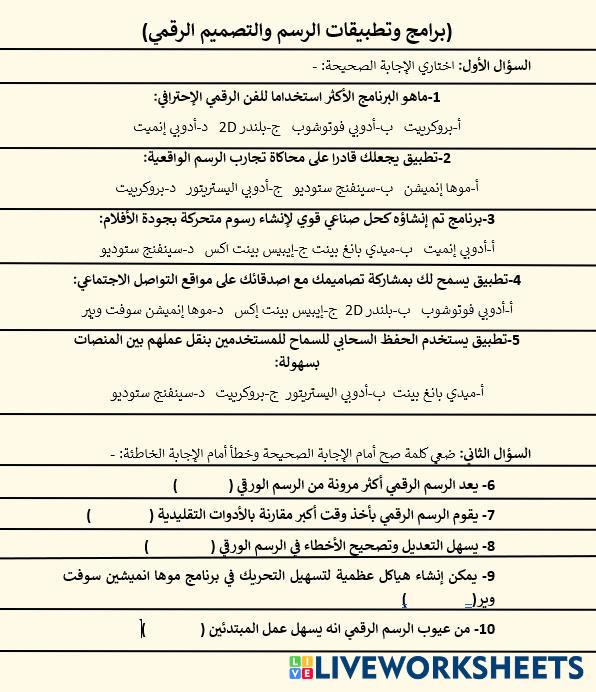 (برامج وتطبيقات الرسم والتصميم الرقمي)
السؤال الأول: اختاري الإجابة الصحيحة: -
1-ماهو البرنامج الأكثر استخداما للفن الرقمي الإحترافي:
أ-بروكرييت ب-أدوبي فوتوشوب ج-بلندر 2D د-أدوبي إنميت
2-تطبيق يجعلك قادرا على محاكاة تجارب الرسم الواقعية:
أ-موها إنميشن ب-سينفنج ستوديو ج-أدوبي اليستريتور د-بروكرييت
3-برنامج تم إنشاؤه كحل صناعي قوي لإنشاء رسوم متحركة بجودة الأفلام:
أ-أدوبي إنميت ب-ميدي بانغ بينت ج-إيبيس بينت اكس د-سينفنج ستوديو
4-تطبيق يسمح لك بمشاركة تصاميمك مع اصدقائك على مواقع التواصل الاجتماعي:
أ-أدوبي فوتوشوب ب-بلندر 2D ج-إيبيس بينت إكس د-موها إنميشن سوفت ويير
5-تطبيق يستخدم الحفظ السحابي للسماح للمستخدمين بنقل عملهم بين المنصات
بسهولة:
أ-ميدي بانغ بينت ب-أدوبي اليستريتور ج-بروكرييت د-سينفنج ستوديو
السؤال الثاني: ضعي كلمة صح أمام الإجابة الصحيحة وخطأ أمام الإجابة الخاطئة: -
6- يعد الرسم الرقمي أكثر مرونة من الرسم الورقي ( )
7- يقوم الرسم الرقمي بأخذ وقت أكبر مقارنة بالأدوات التقليدية ( )
8- يسهل التعديل وتصحيح الأخطاء في الرسم الورقي ( )
9- يمكن إنشاء هياكل عظمية لتسهيل التحريك في برنامج موها انميشين سوفت
وير( )
10- من عيوب الرسم الرقمي انه يسهل عمل المبتدئين ( )
LIVE LIVEWORKSHEETS